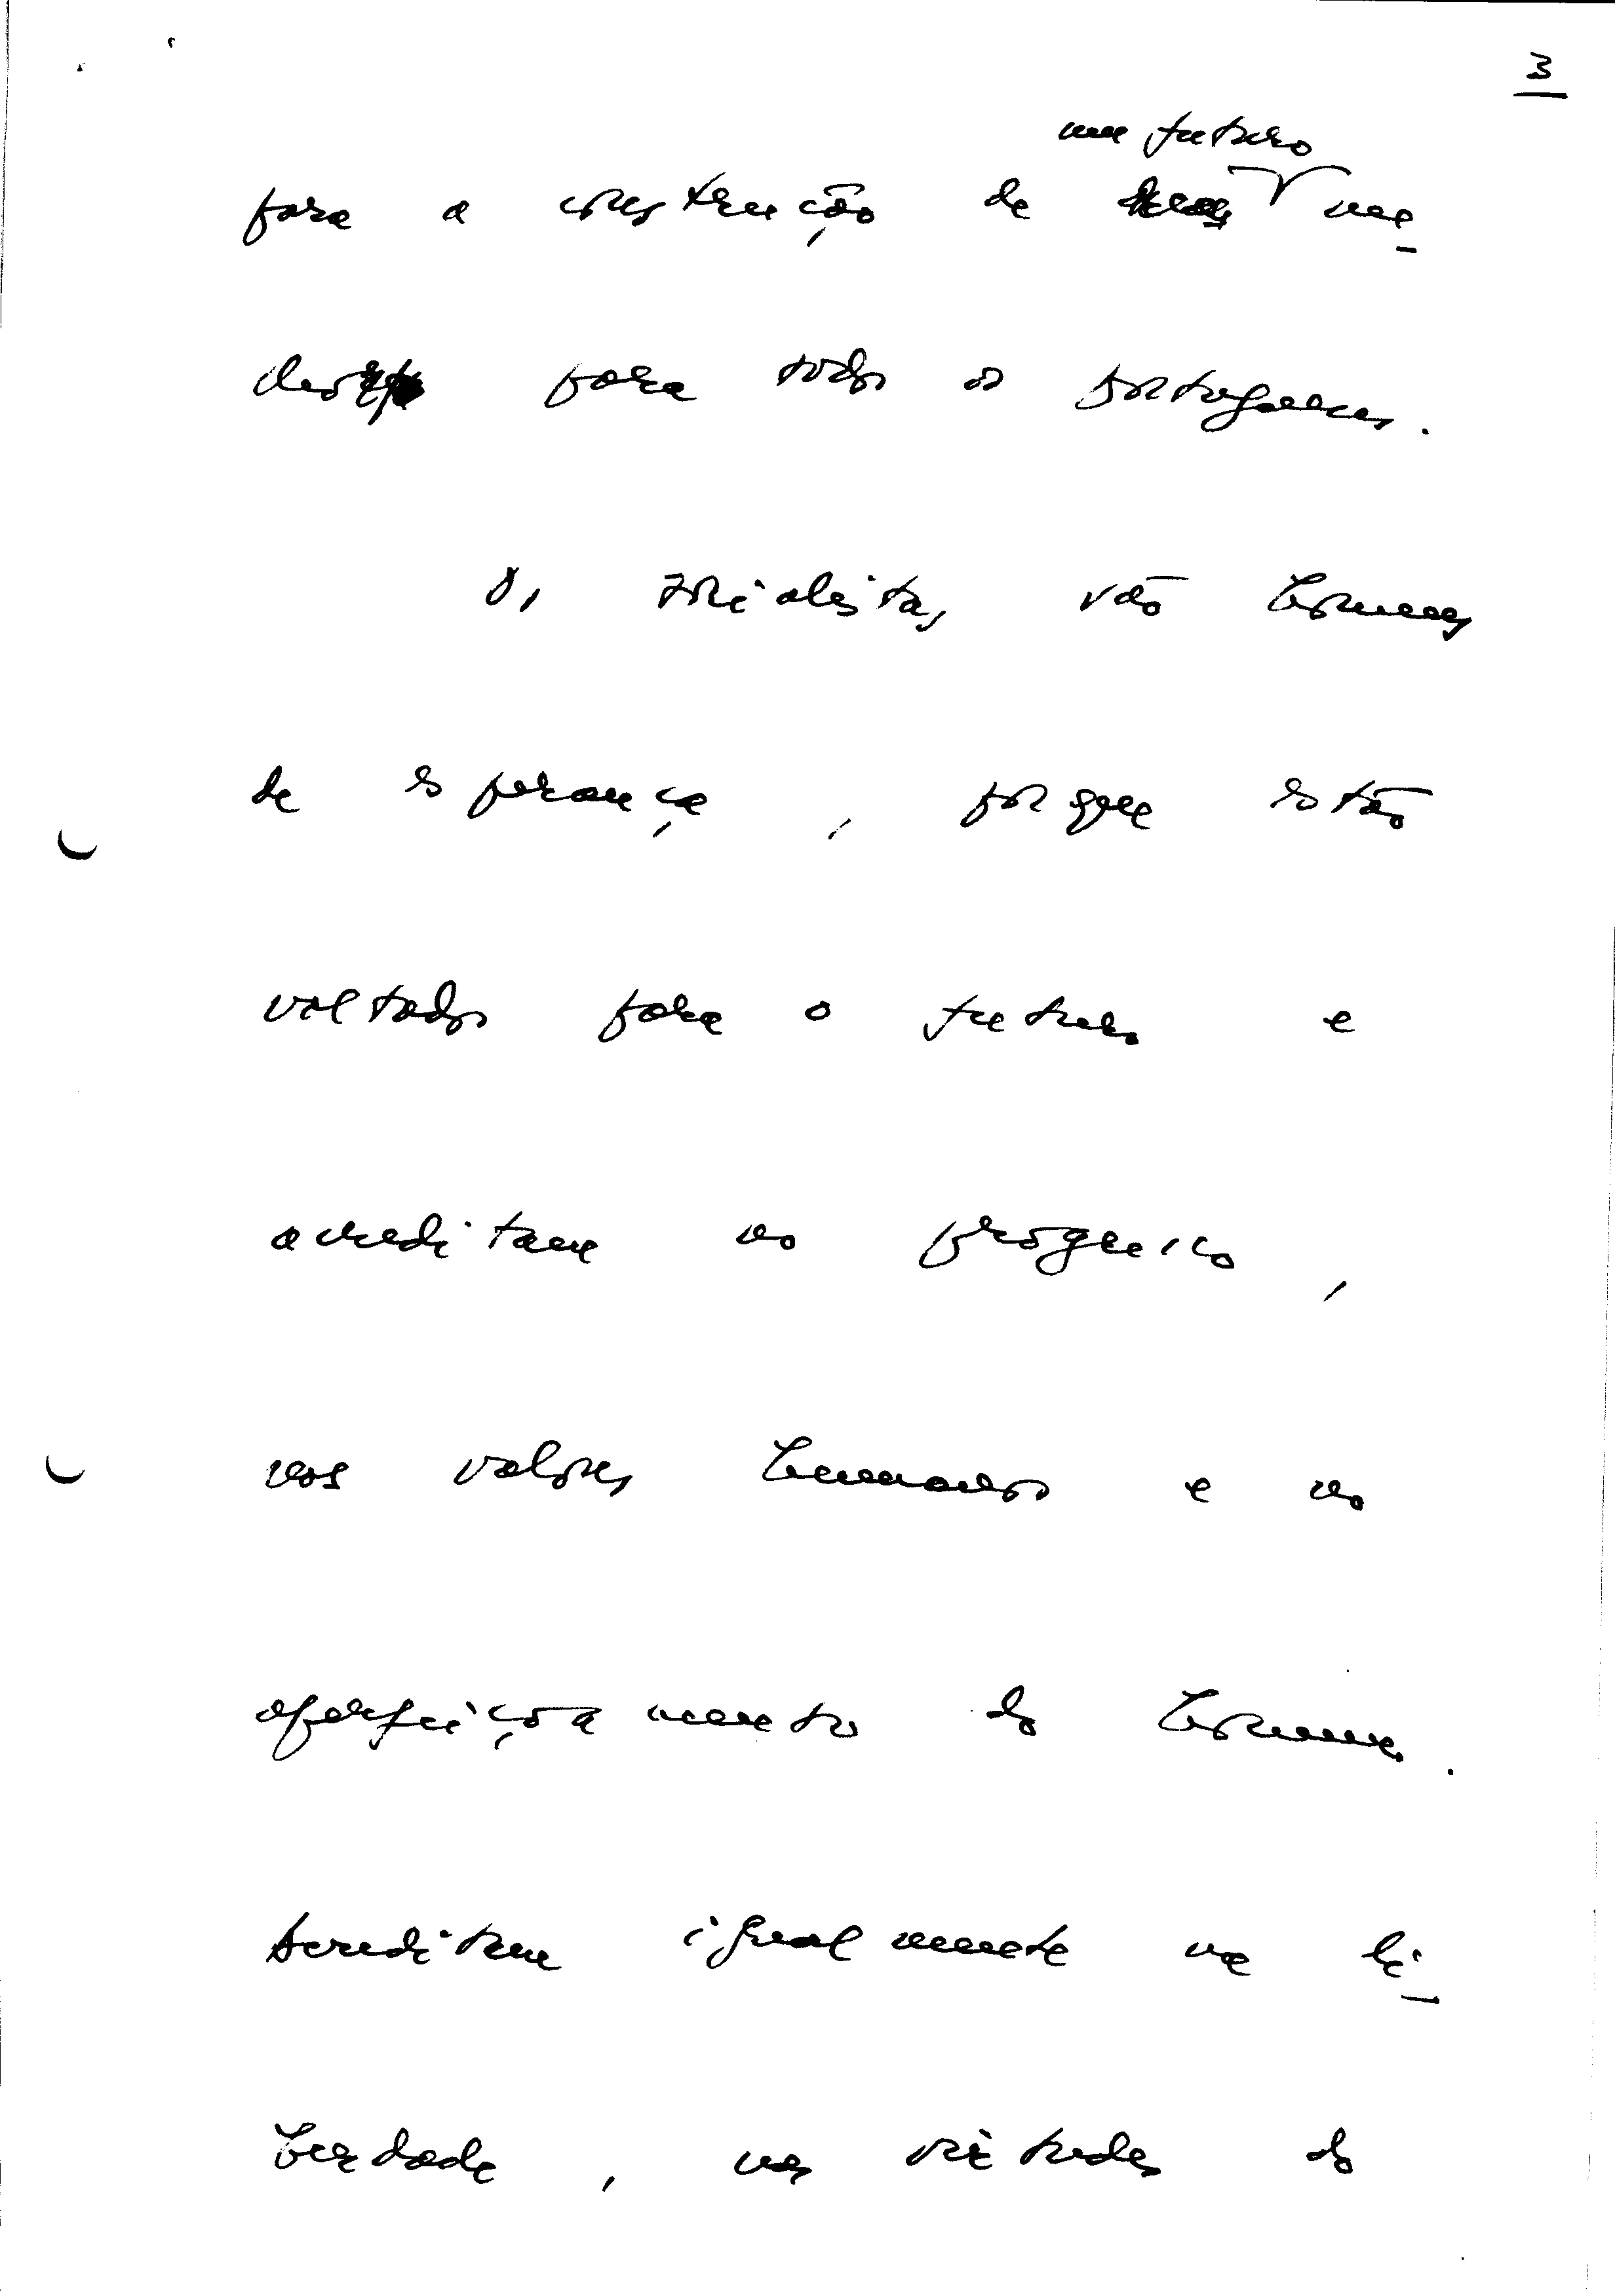 3
um futuro
para a construção de me-
lhor para todos os portugueses.
Os socialistas, são homens
de esperança, porque estão
voltados para o futuro e
acreditam no progresso,
nos valores humanos e no
aperfeiçoamento do homem.
Acreditam igualmente na li-
berdade, nas virtudes do